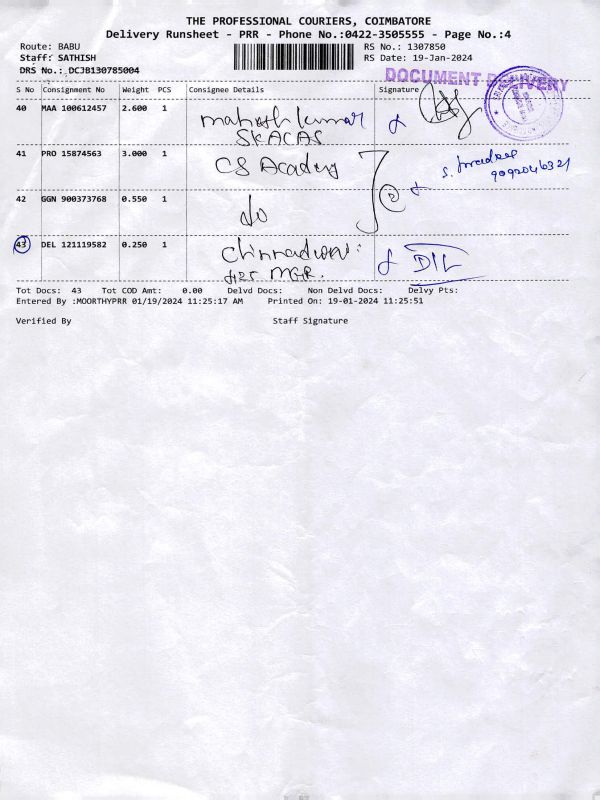 THE PROFESSIONAL COURIERS, COIMBATORE
Delivery Runsheet - PRR - Phone No.:0422-3505555 - Page No.:4
Route: BABU RS No.: 1307850
Staff: SATHISH RS Date: 19-Jan-2024
DRS No.: DCJB130785004
DOCUMENT DELIVERY
S No Consignment No Weight PCS Consignee Details Signature
40 MAA 100612457 2.600 1 mahesh kumar
SKACAS
41 PRO 15874563 3.000 1 CS Academy
9092046321
42 GGN 900373768 0.550 1 do
43 DEL 121119582 0.250 1
MGR.
Tot Docs: 43 Tot COD Amt: 0.00 Delvd Docs: Non Delvd Docs: Delvy Pts:
Entered By :MOORTHYPRR 01/19/2024 11:25:17 AM Printed On: 19-01-2024 11:25:51
Verified By Staff Signature